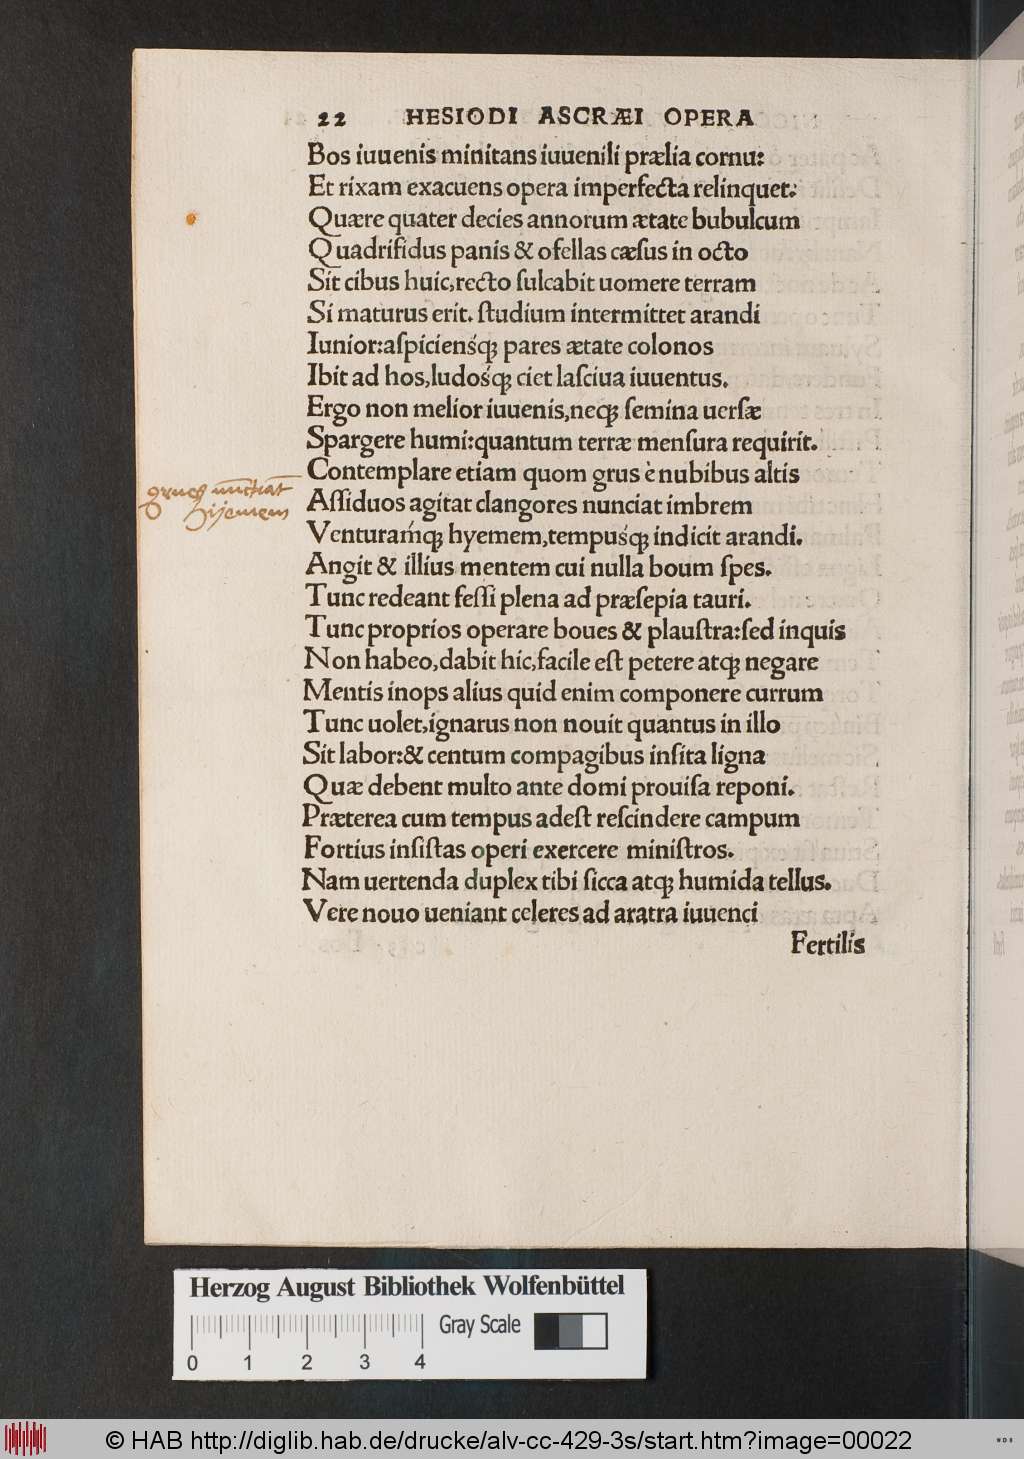 22 HESIODI ASCRÆI OPERA
Bos iuuenis minitans iuuenili prælia cornu:
Et rixam exacuens opera imperfecta relinquet:
Quære quater decies annorum ætate bubulcum
Quadrifidus panis & ofellas cæsus in octo
Sit cibus huic,recto ſulcabit uomere terram
Si maturus erit. ſtudium intermittet arandi
Iunior:aſpicienśqꝫ pares ætate colonos
Ibit ad hos,ludośqꝫ ciet laſciua iuuentus.
Ergo non melior iuuenis,neqꝫ ſemina uerſæ
Spargere humi:quantum terræ menſura requirit.
Contemplare etiam quom grus è nubibus altis
Aſſiduos agitat clangores nunciat imbrem
Venturaḿqꝫ hyemem,tempuśqꝫ indicit arandi.
Angit & illius mentem cui nulla boum ſpes.
Tunc redeant feſſi plena ad præſepia tauri.
Tunc proprios operare boues & plauſtra:ſed inquis
Non habeo,dabit hic,facile eſt petere atqꝫ negare
Mentis inops alius quid enim componere currum
Tunc uolet,ignarus non nouit quantus in illo
Sit labor:& centum compagibus inſita ligna
Quæ debent multo ante domi prouiſa reponi.
Præterea cum tempus adeſt reſcindere campum
Fortius inſiſtas operi exercere miniſtros.
Nam uertenda duplex tibi ſicca atqꝫ humida tellus.
Vere nouo ueniant celeres ad aratra iuuenci
Fertilis
hijemem
Herzog August Bibliothek Wolfenbüttel
Gray Scale
0 1 2 3 4
© HAB http://diglib.hab.de/drucke/alv-cc-429-3s/start.htm?image=00022